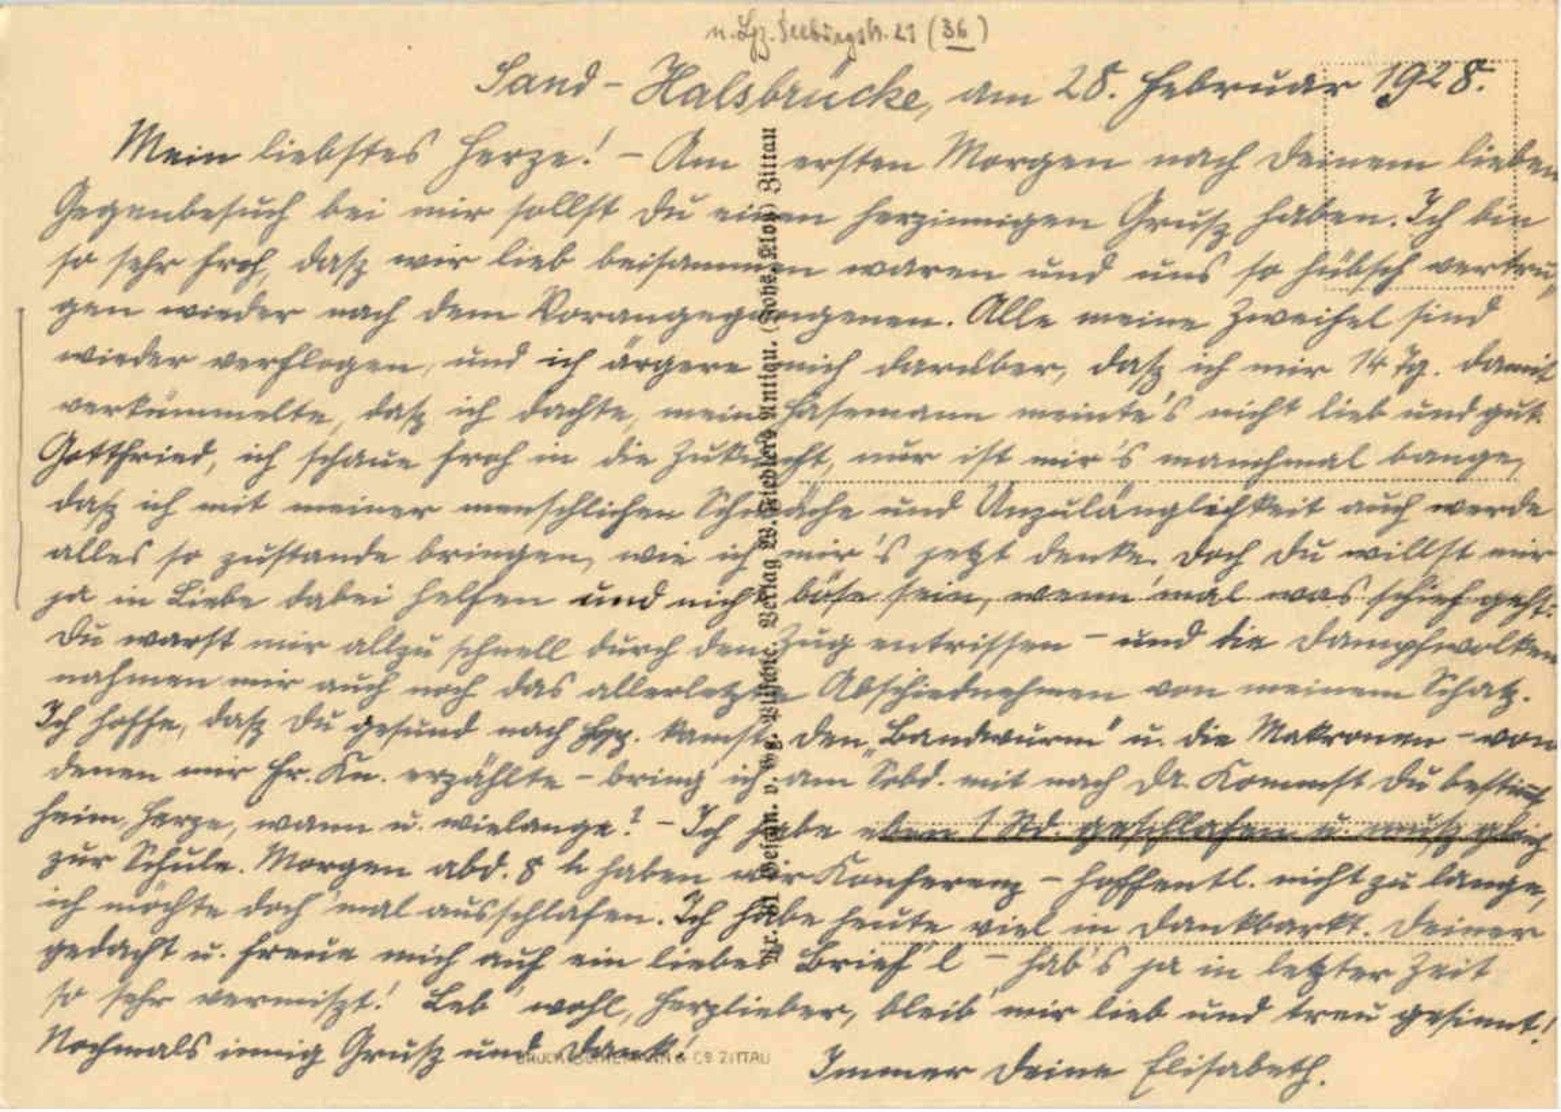 n. Lpz. Seeburgstr. 21 (36)
Sand-Halsbrücke, am 28. Februar 1928.
Mein liebstes Herze! – Am ersten Morgen nach Deinem lieben
Gegenbesuch bei mir sollst Du einen herzinnigen Grusz haben. Ich bin
so sehr froh, dasz wir lieb beisammen waren und uns so hübsch vertru-
gen wieder nach dem Vorangegangenen. Alle meine Zweifel sind
wieder verflogen, und ich ärgere mich darüber, dasz ich mir 14 Tg. damit
verkümmelte, dasz ich dachte, mein Hasemann meinte's nicht lieb und gut.
Gottfried, ich schaue froh in die Zukunft, nur ist mir's manchmal bange,
dasz ich mit meiner menschlichen Schwäche und Unzulänglichkeit auch werde
alles so zustande bringen, wie ich mir's jetzt denke. Doch Du willst mir
ja in Liebe dabei helfen und nicht böse sein, wenn 'mal was schief geht.
Du warst mir allzu schnell durch den Zug entrissen – und die Dampfwolken
nahmen mir auch noch das allerletzte Abschiednehmen von meinem Schatz.
Ich hoffe, dasz Du gesund nach Lpz. kamst. Den „Bandwurm" u. die Makronen – von
denen mir Fr. Kn. erzählte – bring' ich am Sobd. mit nach Dr. Kommst Du bestimmt
heim, Herze, wann u. wielange? – Ich habe eben 1 Std. geschlafen u. musz gleich
zur Schule. Morgen abd. 8 h haben wir Konferenz – hoffentl. nicht zu lange,
ich möchte doch 'mal ausschlafen. Ich habe heute viel in Dankbarkt. Deiner
gedacht u. freue mich auf ein liebes Brief'l – hab's ja in letzter Zeit
so sehr vermiszt! Leb' wohl, Herzlieber, bleib' mir lieb und treu gesinnt!
Nochmals innig Grusz und Dank!
Immer Deine Elisabeth.
Verlag W. Fiedlers Antiqu. (Johs. Klotz) Zittau
ZITTAU